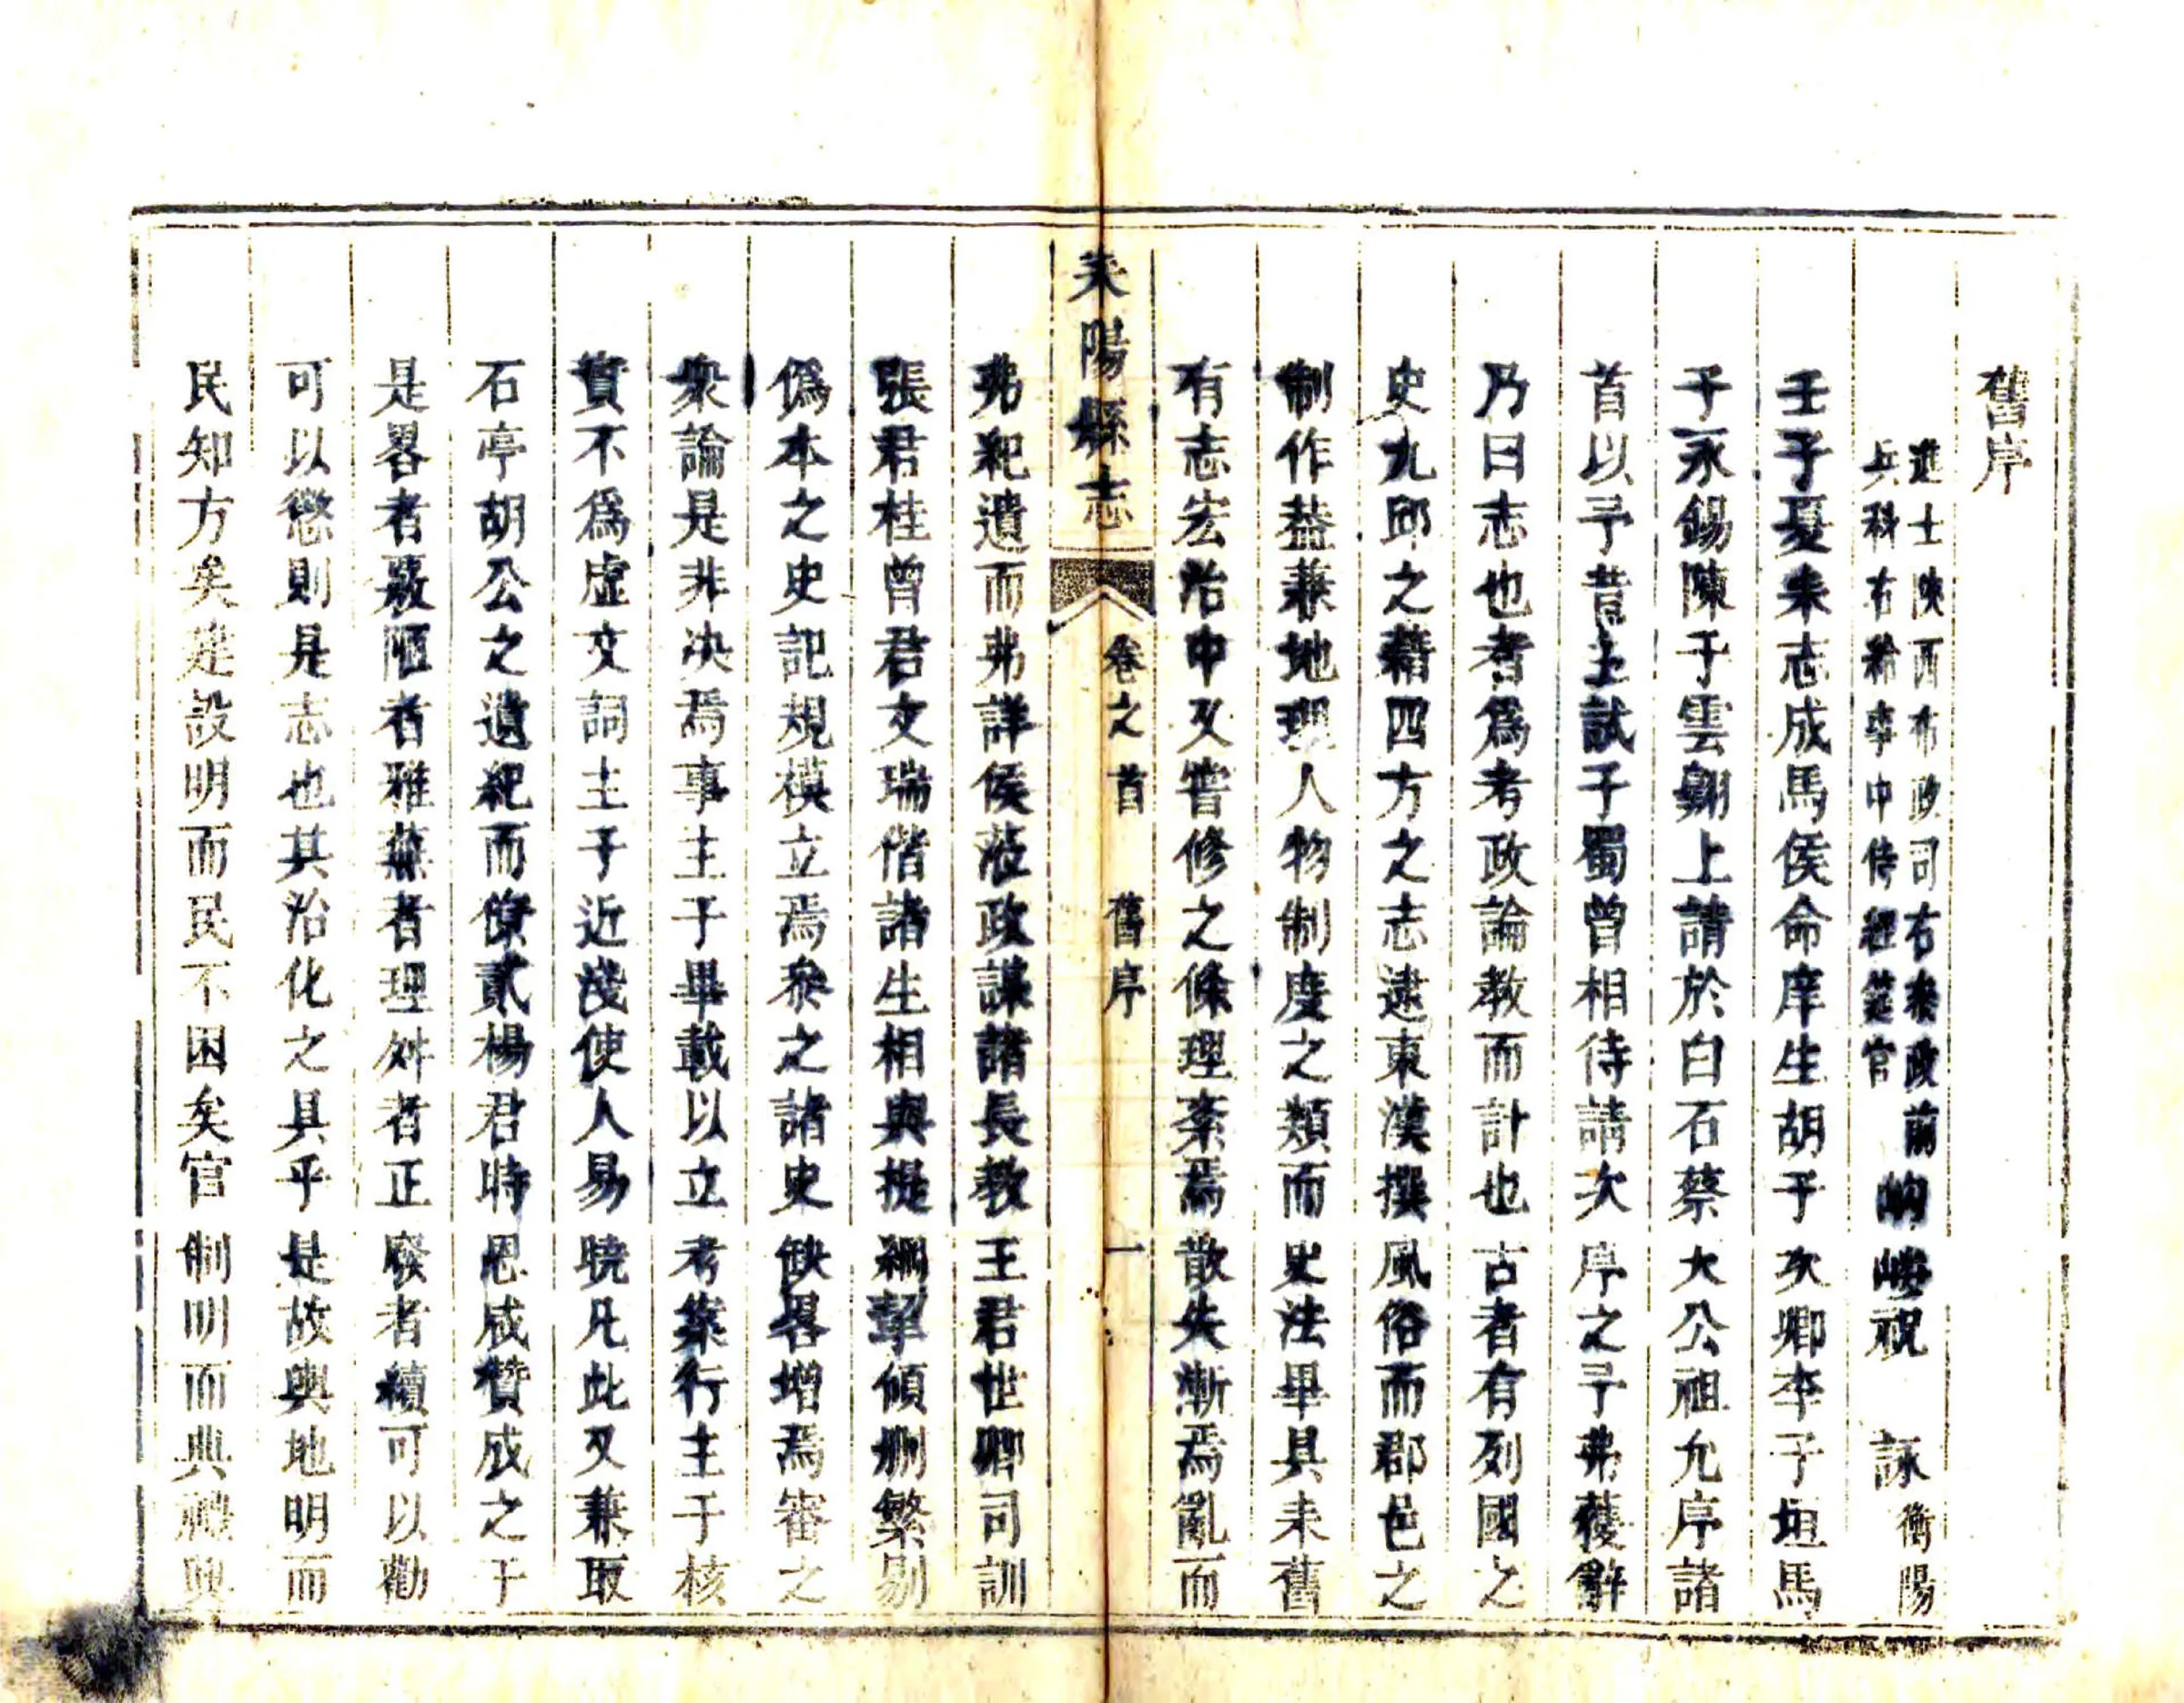 舊序
進士陝西布政司右叅政前
兵科右給事中侍經筵官
岣嶁祝 詠衡陽
壬子夏耒志成馬侯命庠生胡子次卿李子垣馬
子永錫陳子雲翺上請於白石蔡大公祖允序諸
首以予昔主試于蜀曾相待請次序之予弗獲辭
乃曰志也者爲考政論教而計也古者有列國之
史九邱之籍四方之志逮東漢撰風俗而郡邑之
制作益兼地理人物制度之類而史法畢具耒舊
有志宏治中又嘗修之條理紊焉散失漸焉亂而
耒陽縣志 卷之首 舊序 一
弗紀遺而弗詳侯蒞政謀諸長教王君世卿司訓
張君桂曾君文瑞偕諸生相與提綱挈領刪繁剔
僞本之史記規模立焉叅之諸史缺畧增焉審之
衆論是非决焉事主于畢載以立考案行主于核
實不爲虛文詞主于近淺使人易曉凡此又兼取
石亭胡公之遺紀而僚貳楊君時恩咸贊成之于
是畧者覈陋者雅蕪者理舛者正廢者續可以勸
可以懲則是志也其治化之具乎是故輿地明而
民知方矣建設明而民不困矣官制明而典禮興